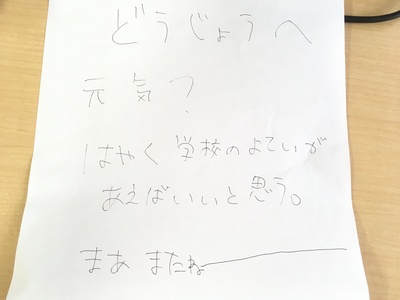 どうじょうへ
元気?
はやく学校のよていが
あえばいいと思う。
まあ またねー